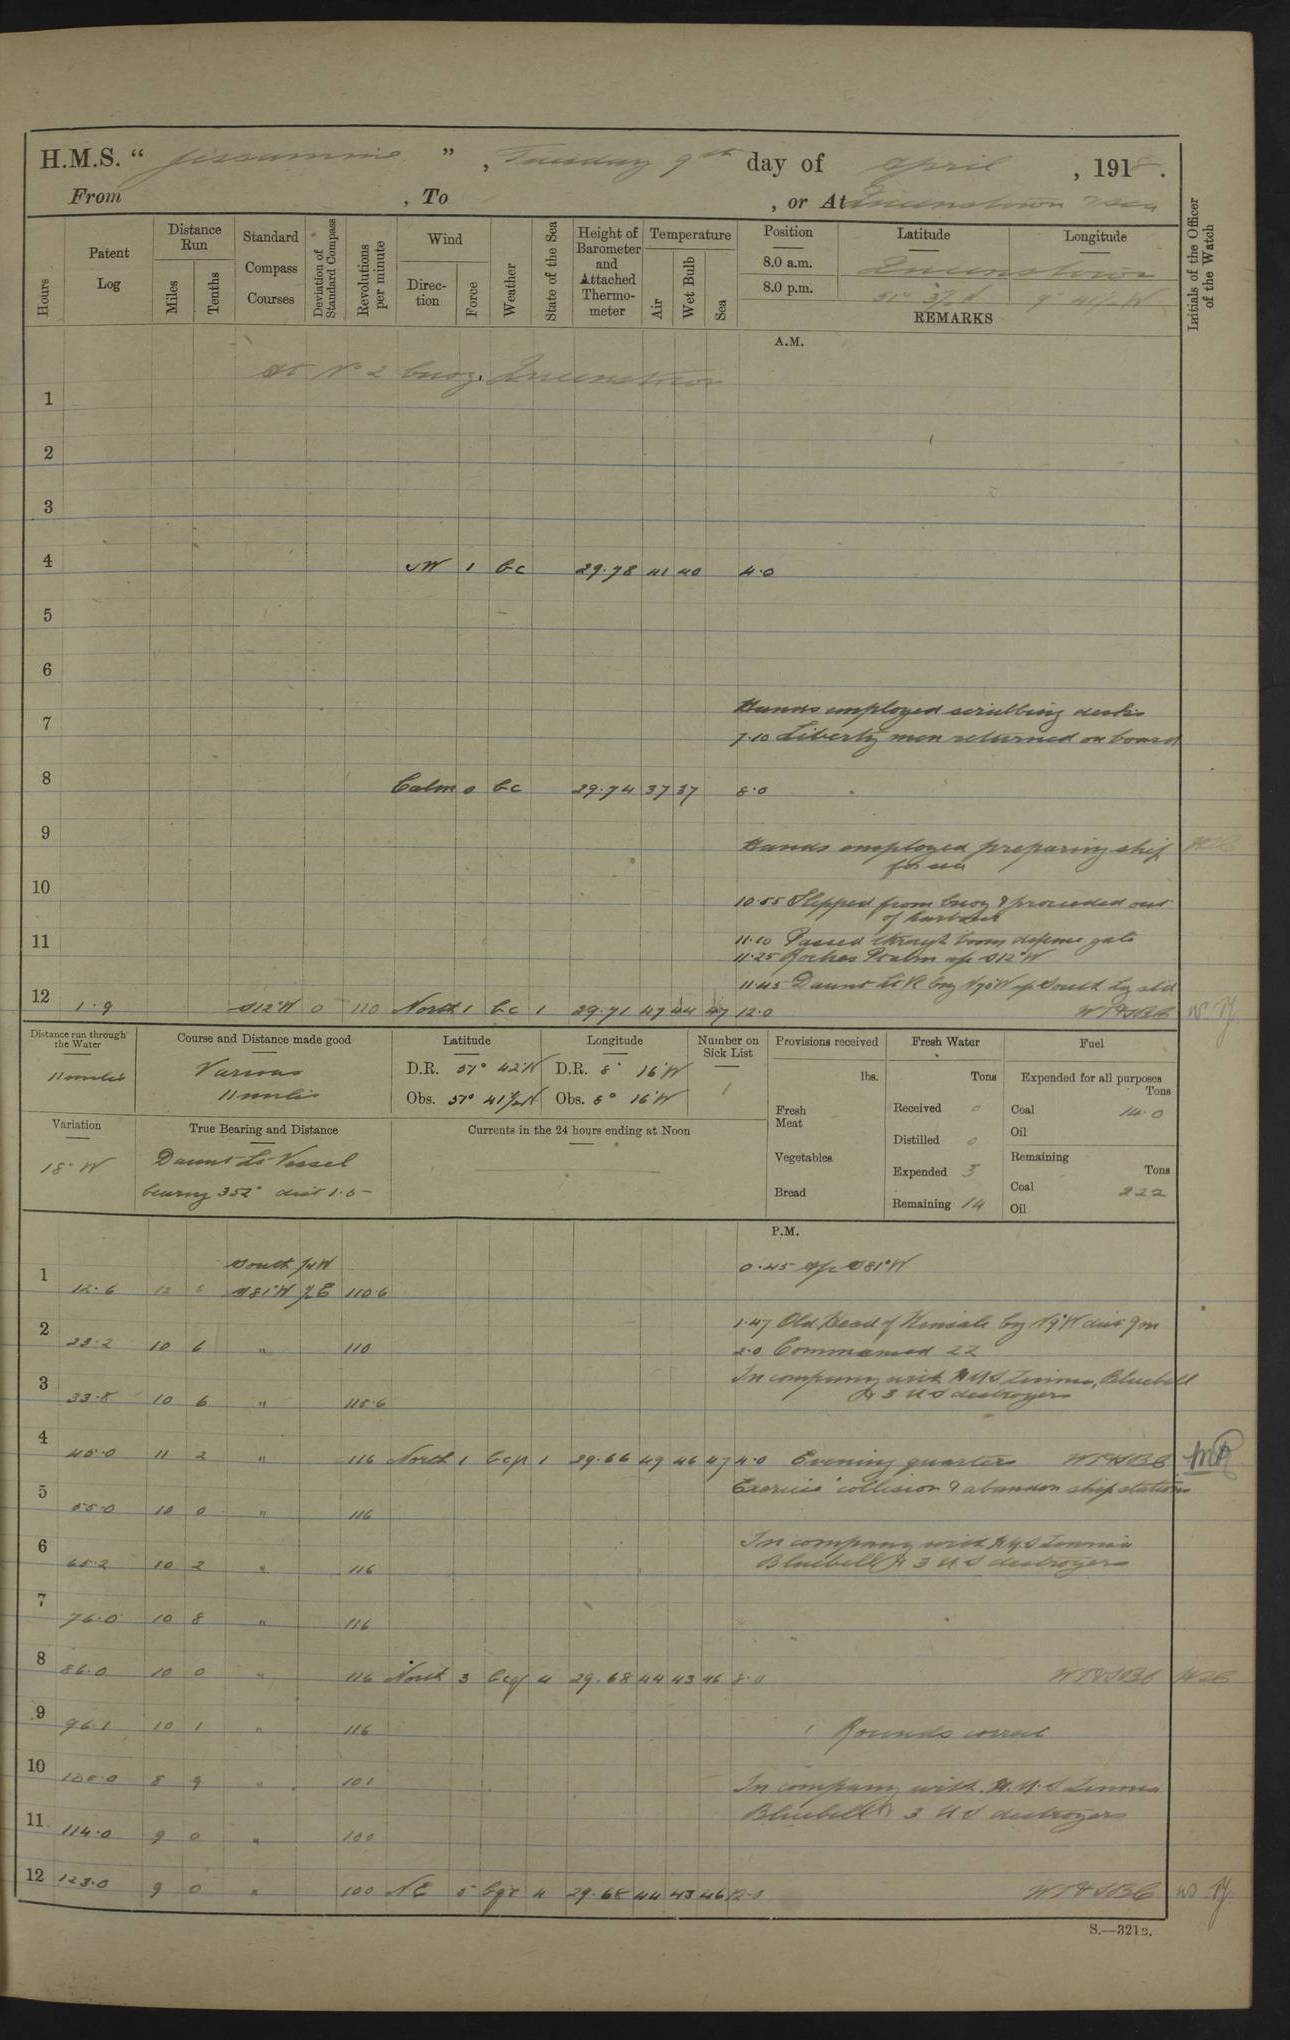 H.M.S. “ Jessamine ” , Tuesday 9th day of April , 1918 .
From , To , or At Queenstown
Hours
Patent Log
Distance Run
Miles
Tenths
Standard Compass Courses
Deviation of Standard Compass
Revolutions per minute
Wind
Direction
Force
Weather
State of the Sea
Height of Barometer and Attached Thermometer
Temperature
Air
Wet Bulb
Sea
Position
8.0 a.m.
8.0 p.m.
Latitude
Longitude
Queenstown
Initials of the Officer of the Watch
REMARKS
A.M.
At No 2 buoy, Queenstown
1
2
3
4 W 1 bc 29.78 41 40 4.0
5
6
Hands employed scrubbing decks
7
7.10 Liberty men returned on board
8 Calm 0 bc 29.74 37 37 8.0
9
Hands employed preparing ship
for sea
10
10.55 Slipped from buoy & proceeded out
of harbour
11
11.10 Passed through boom defense gate
11.25 Roches Point abm a/c S12°W
11.45 Daunt Lt V
12 1.9 S12°W 0 110 North 1 bc 1 29.71 47 44 47 12.0
Distance run through the Water
11 miles
Course and Distance made good
Various
11 miles
Latitude
D.R. 51° 42'N
Obs. 51° 41½N
Longitude
D.R. 8° 16'W
Obs. 8° 16'W
Number on Sick List
1
Provisions received
lbs.
Fresh Meat
Vegetables
Bread
Fresh Water
Tons
Received 0
Distilled 0
Expended 3
Remaining 14
Fuel
Expended for all purposes
Tons
Coal 14.0
Oil
Remaining
Tons
Coal 222
Oil
Variation
18° W
True Bearing and Distance
Daunt Lt Vessel
bearing 352° dist 1.5
Currents in the 24 hours ending at Noon
P.M.
South
0.45 a/c S81°W
1 12.6 12 6 S81°W 110.6
1.47 Old Head of Kinsale by N9°W dist 9m
2 23.2 10 6 " 110 2.0 Commenced ZZ
In company with HMS Zinnia, Bluebell
& 3 US destroyers
3 33.8 10 6 " 115.6
4 45.0 11 2 " 116 North 1 bcp 1 29.66 49 46 47 4.0 Evening quarters
Exercise collision & abandon ship stations
5 55.0 10 0 " 116
In company with HMS Zinnia
Bluebell & 3 U.S destroyers
6 65.2 10 2 " 116
7 76.0 10 8 " 116
8 86.0 10 0 " 116 North 3 bcq 4 29.68 44 43 46 8.0
9 96.1 10 1 " 116 Rounds correct
10 105.0 8 9 " 101 In company with H.M.S Zinnia
Bluebell & 3 US destroyers
11 114.0 9 0 " 100
12 123.0 9 0 " 100 NE 5 29.68 44 43 46 12.0
S.—321B.